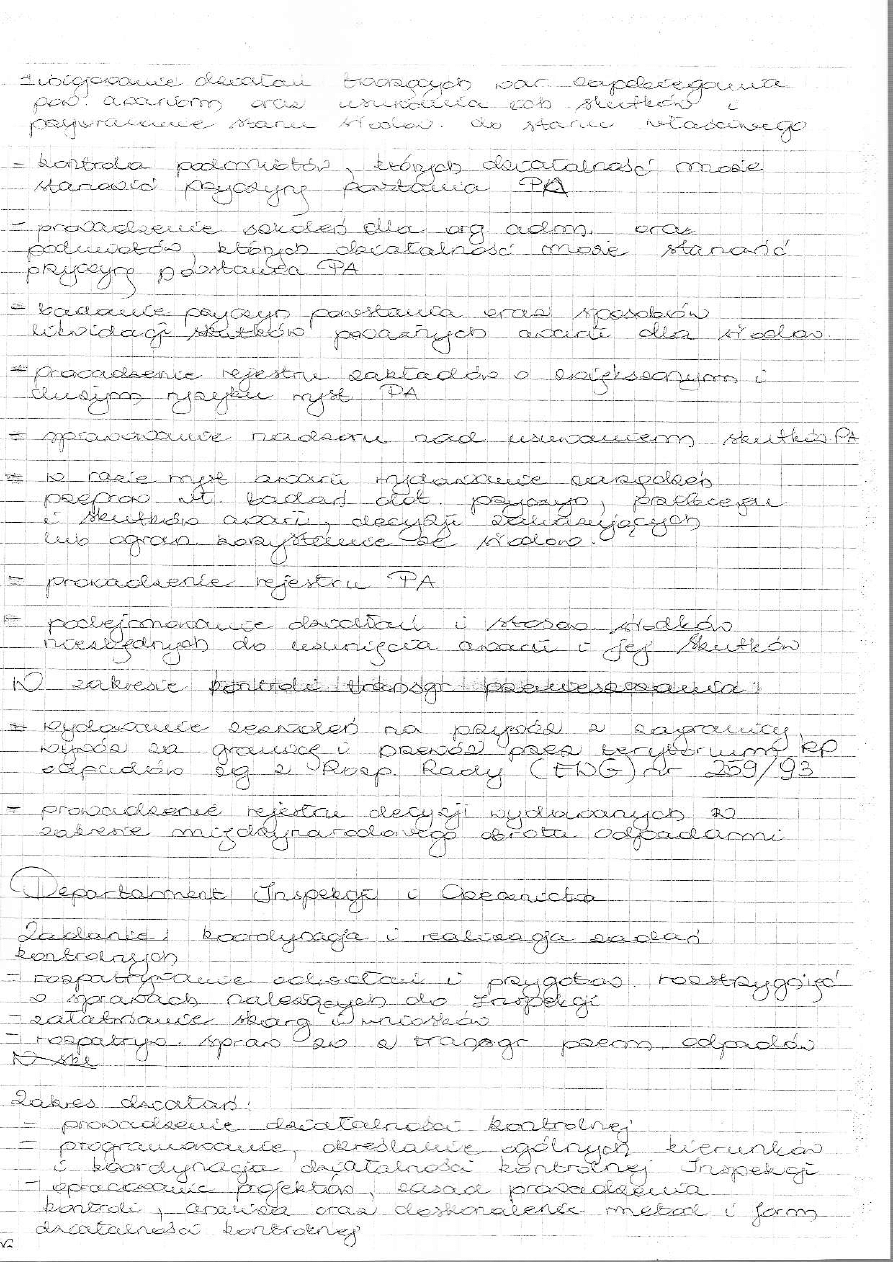 - inicjowanie działań tworzących war. zapobiegania
pow. awariom oraz usuwania ich skutków i
przywracanie stanu środow. do stanu właściwego
- kontrola podmiotów, których działalność może
stanowić przyczynę powstania PA
- prowadzenie szkoleń dla org. adm. oraz
podmiotów, których działalność może stanowić
przyczynę powstania PA
- badanie przyczyn powstania oraz sposobów
likwidacji skutków poważnych awarii dla środow.
- prowadzenie rejestru zakładów o zwiększonym i
dużym ryzyku wyst PA
- sprawowanie nadzoru nad usuwaniem skutków PA
- w razie wyst awarii wydawanie zarządzeń
przeprow wł. badań dot. przyczyn, przebiegu
i skutków awarii, decyzji zakazujących
lub ogran korzystanie ze środow.
- prowadzenie rejestru PA
- podejmowanie działań i stosow środków
niezbędnych do usunięcia awarii i jej skutków
W zakresie kontroli transgr przemieszczania:
- wydawanie zezwoleń na przywóz z zagranicy,
wywóz za granicę i przewóz przez terytorium RP
odpadów zg z Rozp. Rady (EWG) nr 259/93
- prowadzenie rejestru decyzji wydawanych w
zakresie międzynarodowego obrotu odpadami
Departament Inspekcji i Orzecznictwa
Zadanie: koordynacja i realizacja zadań
kontrolnych
- rozpatrywanie odwołań i przygotow. rozstrzygnięć
w sprawach należących do Inspekcji
- załatwianie skarg i wniosków
- rozpatryw. spraw zw z transgr przem. odpadów
Zakres działań:
- prowadzenie działalności kontrolnej
- programowanie, określanie ogólnych kierunków
i koordynacja działalności kontrolnej Inspekcji
- opracowanie projektów, zasad prowadzenia
kontroli, analiza oraz doskonalenie metod i form
działalności kontrolnej